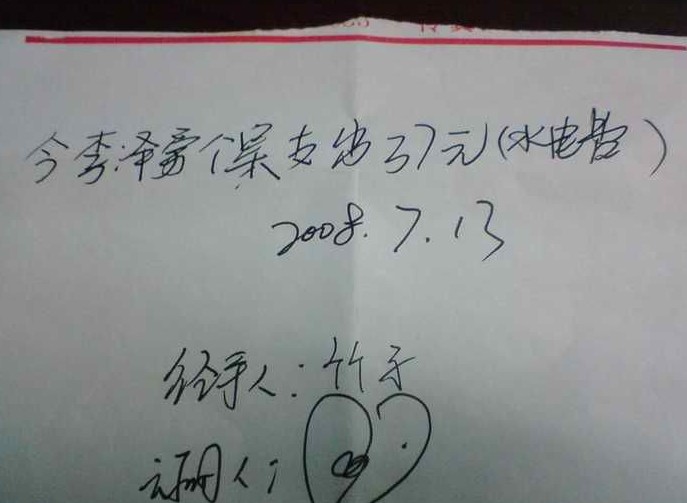 今李泽雷保支出37元(水电费)
2008.7.13
经手人:竹子
证明人: